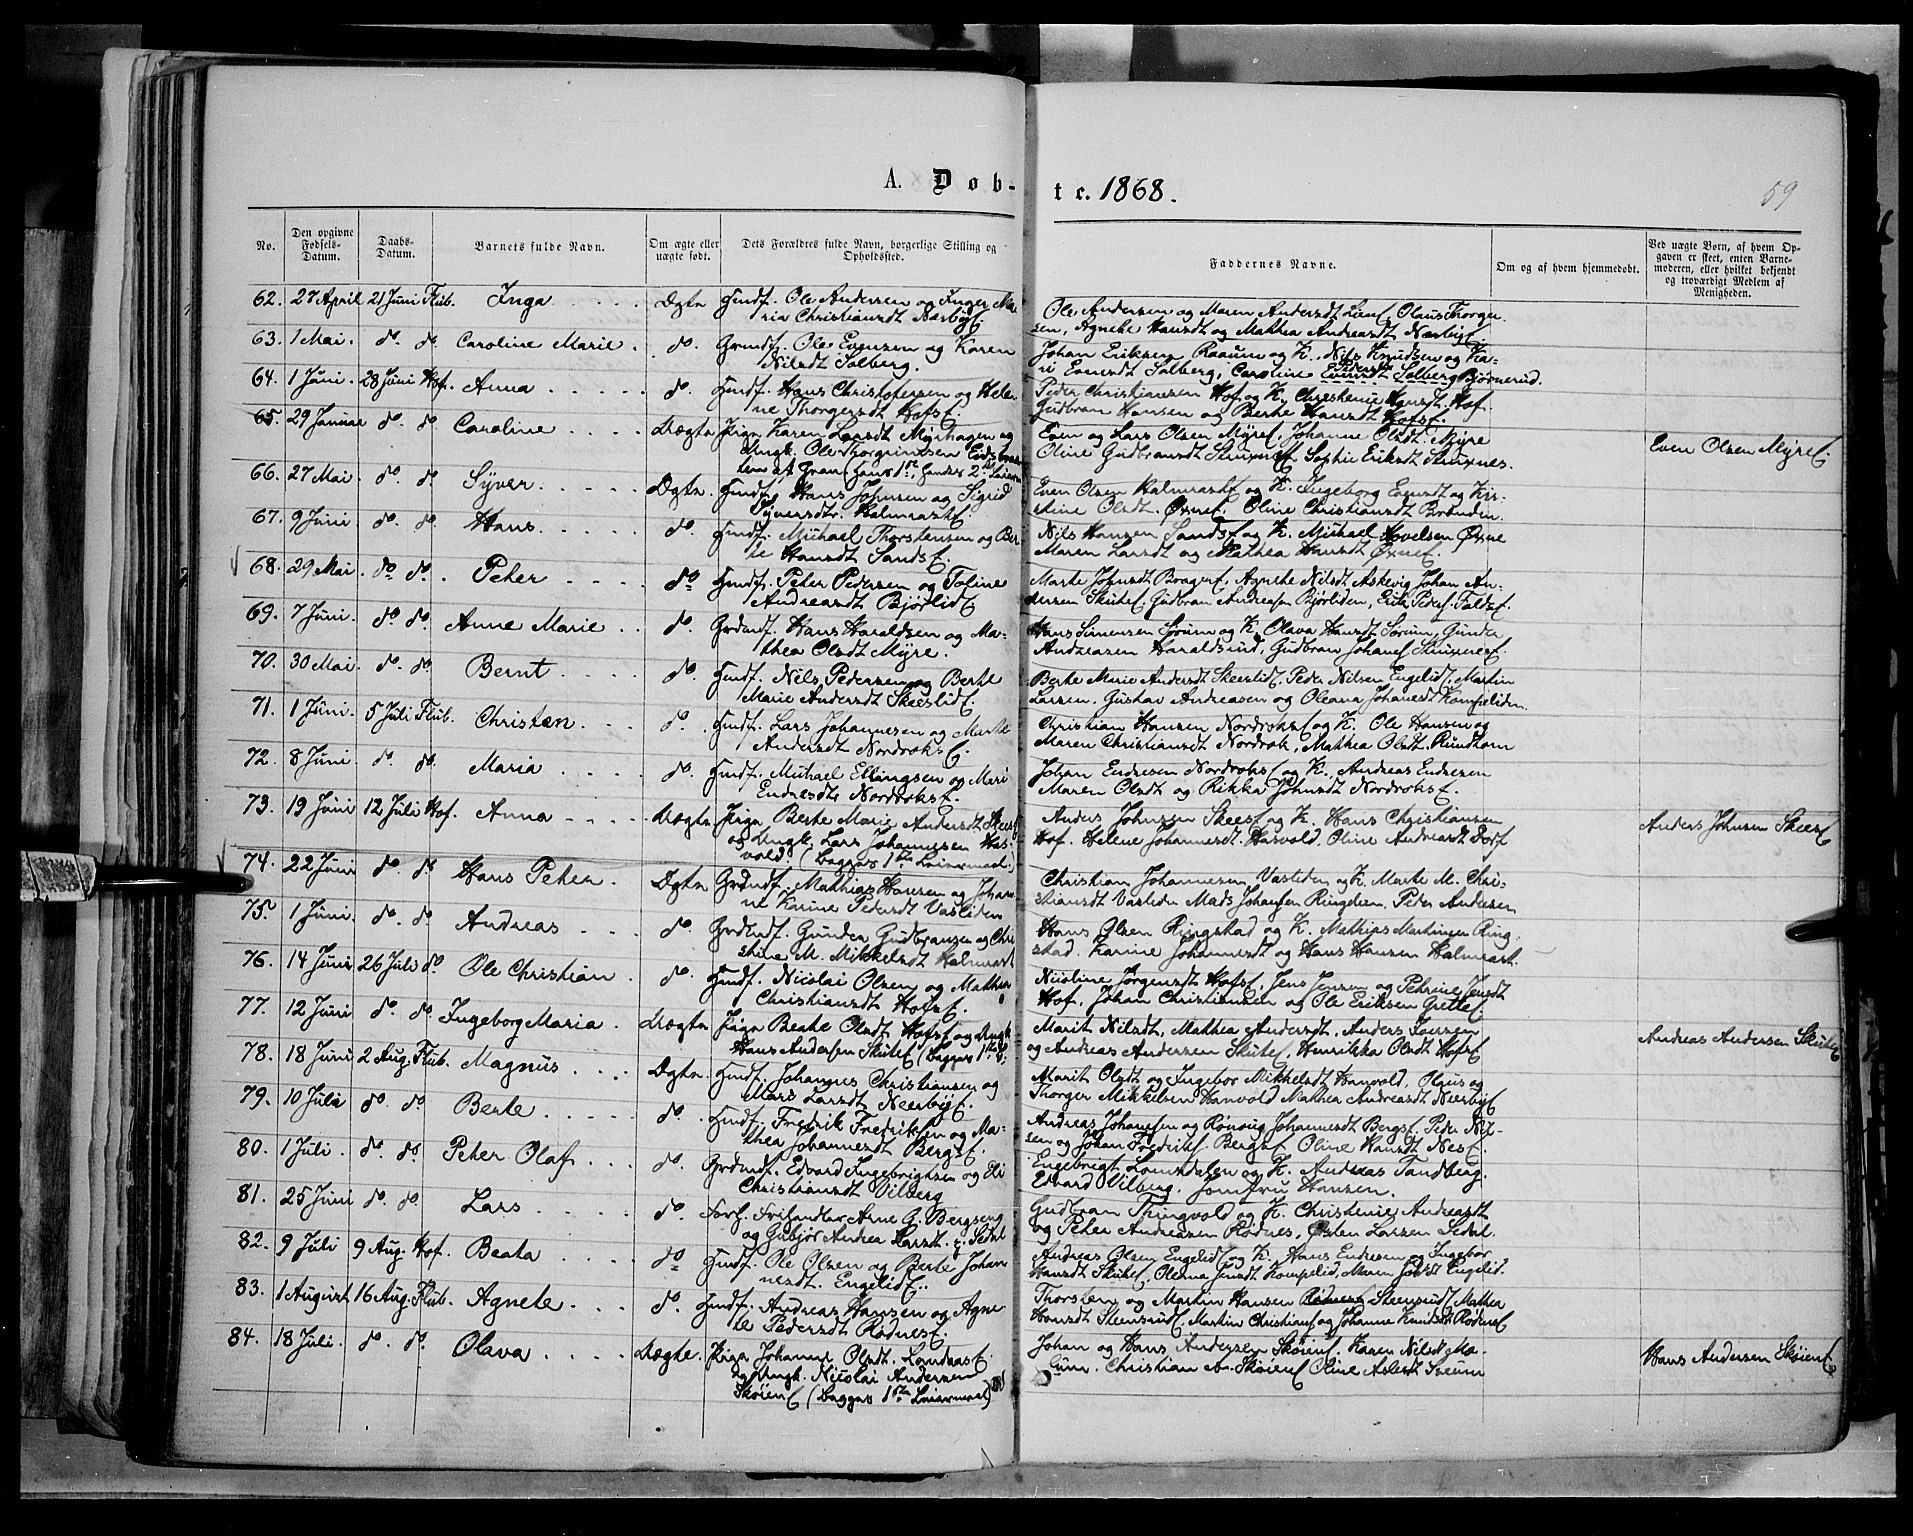 A. Døb-
te. 1868.
59
No.
Den opgivne Fødsels-Datum.
Daabs-Datum.
Barnets fulde Navn.
Om ægte eller uægte født.
Dets Forældres fulde Navn, borgerlige Stilling og Opholdssted.
Faddernes Navne.
Om og af hvem hjemmedøbt.
Ved uægte Børn, af hvem Opgaven er skeet, enten Barnemoderen, eller hvilket bekjendt og troværdigt Medlem af Menigheden.
62. 27 April 21 Juni Flub. Inga Ægte Hmdf. Ole Andersen og Inger Ma-
ria Christiansdt Nærbyf.
Ole Andersen og Maren Andersdt Lief, Olaus Thorger-
sen, Agnethe Hansdt og Mathea Andreasdt Nærbyf.
63. 1 Mai. do. do. Caroline Marie. do. Grmdf. Ole Evensen og Karen
Nilsdt Solberg.
Johan Eriksen Raaum og K. Nils Knudsen og Ka-
ri Evensdt Solberg, Caroline Pedersdt Bjørnerud.
64. 1 Juni. 28 Juni Hof. Anna do. Hmdf. Hans Christophersen og Hele-
ne Thorgersdt Hofsf.
Peder Christiansen Hof og K. Christenie Hansdt Hof.
Gudbran Hansen og Berthe Hansdt Hofsf.
65. 29 Januar do. do. Caroline Uægte Piga Karen Larsdt Myrhagen og
Ungk. Ole Thorgrimsen
af Gran. Hans 1ste, hendes 2det Leierm.
Even og Lars Olsen Myref. Johanne Olsdt Myre
Oline Gudbransdt Struxnesf. Sophie Eriksdt Struxnes.
Even Olsen Myref.
66. 27 Mai do. do. Syver. Ægte. Hmdf. Hans Johnsen og Sigrid
Syversdtr. Halmrastf.
Even Olsen Halmrastf og K. Ingeborg Evensdt og Kir-
stine Olsdt. Øxnef. Oline Christiansdt Brænden.
67. 9 Juni do. do. Hans. do. Hmdf. Michael Thorstensen og Ber-
te Hansdt Sandsf.
Nils Hansen Sandsf og K. Michael Hovelsen Øxne
Maren Larsdt og Mathea Hansdt Øxnef.
68. 29 Mai. do. do. Peter do. Hmdf. Peter Pedersen og Toline
Andreasdt Bjørlidf.
Marte Johnsdt Bragerf, Agnethe Nilsdt Askevig Johan An-
dersen Skutef, Gudbran Andreasen Bjørliden, Erik Peters. Faldsf.
69. 7 Juni. do. do. Anne Marie do. Grdmdf. Hans Haraldsen og Ma-
thea Olsdt Myre.
Hans Simensen Sørum og K. Olava Hansdt Sørum, Gunder
Andreasen Haraldsrud, Gudbran Johansf. Struxnesf.
70. 30 Mai do. do. Bernt do. Hmdf. Nils Pedersen og Berthe
Marie Andersdt Skeeslidf.
Berte Marie Andersdt Skeeslidf, Peder Nilsen Engelidf, Martin
Larsen, Gustav Andreasen og Oleana Johannesdt Kompeliden.
71. 1 Juni. 5 Juli Flub. Christen. do. Hmdf. Lars Johannesen og Marthe
Andersdt Nordroksf.
Christian Hansen Nordroksf og K. Ole Hansen og
Maren Christiansdt Nordrok, Mathea Olsdt. Rundhom
72. 8 Juni do. do. Maria do. Hmdf. Michael Ellingsen og Mari
Endresdtr Nordroksf.
Johan Endresen Nordroksf og K. Andreas Endresen
Maren Olsdt og Rikka Johnsdt Nordroksf.
73. 19 Juni 12 Juli Hof. Anna Uægte Piga Berte Marie Andersdt Skeesf
og Ungk. Lars Johannesen Has-
vold. (Begges 1ste Leiermaal.)
Anders Johnsen Skeesf og K. Hans Christiansen
Hof. Helene Johannesdt. Hasvold. Oline Andreasdt Dorf
Anders Johnsen Skeesf
74. 22 Juni do. do. Hans Peter. Ægte Grdmdf. Mathias Hansen og Johan-
ne Karine Pedersdt Vasliden
Christian Johannesen Vasliden og K. Marte M. Chri-
stiansdt Vasliden Mads Johansen Ringelien. Peder Andersen
75. 1 Juni do. do. Andreas do. Grdmdf. Gunder Gudbransen og Chri-
stine M. Mikkelsdt Halmrast
Hans Olsen Ringstad og K. Mathias Martinsen Ring-
stad. Karine Johannesdt og Hans Hansen Halmrast.
76. 14 Juni 26 Juli do. Ole Christian. do. Hmdf. Nicolai Olsen og Mathea
Christiansdt Hofsf.
Nicoline Jørgensdt Hofsf. Jens Jensen og Petrine Jensdt
Hof, Johan Christiansen og Ole Eriksen Grettef.
77. 12 Juni do. do. Ingeborg Maria. Uægte Piga Beate Olsdt Hofsf og Ungk
Hans Andersen Skutef (begges 1ste L.)
Marit Nilsdt, Mathea Andersdt, Anders Jansen
og Andreas Andersen Skutef, Henrikka Olsdt Hofsf.
Andreas Andersen Skutef
78. 18 Juni 2 Aug. Flub. Magnus Ægte. Hmdf. Johannes Christiansen og
Mari Larsdt Neerbyf.
Marit Olsdt og Ingebor Mikkelsdt Hanvold. Olaus og
Thorger Mikkelsen Hanvold Mathea Andreasdt Neerbyf
79. 10 Juli do. do. Berte do. Hmdf. Fredrik Fredriksen og Ma-
thea Johannesdt Bergsf.
Andreas Johansen og Rønnug Johannesdt Bergsf. Peder Nil-
sen og Johan Fredriksf. Bergsf Oline Hansdt Nesf.
80. 1 Juli. do. do. Peter Olaf do. Grdmdf. Edvard Ingebrigtsen og Eli
Christiansdt Vilberg
Engebregt Lomsdalen og K. Andreas Tandberg.
Edvard Vilberg. Jomfru Hansen.
81. 25 Juni do. do. Lars do. Forh. Frihandler Arne G. Bergseng
og Gubjør Andrea Larsdt. Sedal
Gudbran Thingvold og K. Christenie Andreasdt
og Peter Andreasen Rødnes, Østen Larsen Sedal.
82. 9 Juli 9 Aug. Hof. Beata do Hmdf. Ole Olsen og Berte Johan-
nesdt. Engelidf.
Andreas Olsen Engelidf og K. Hans Endresen og Ingebor
Hansdt Skutef, Oleana Jensdt Kompelid, Maren Johsdt Engelid.
83. 1 August 16 Aug. Flub. Agnete. do. Hmdf. Andreas Hansen og Agne-
te Pedersdt Rødnesf.
Thorsten og Martin Hansen Steensrudf, Mathea
Hansdt Steensrudf. Martin Christiansf og Johanne Knudsdt Rødnesf
84. 18 Juli. do. do. Olava Uægte. Piga Johanne Olsdt. Lomdalsf.
og Ungk. Nicolai Andersen
Skøienf (begges 1ste Leiermaal)
Johan og Hans Andersen Skøienf. Karen Nilsdt
Christian A. Skøienf Oline Asledt Sveum
Hans Andersen Skøienf